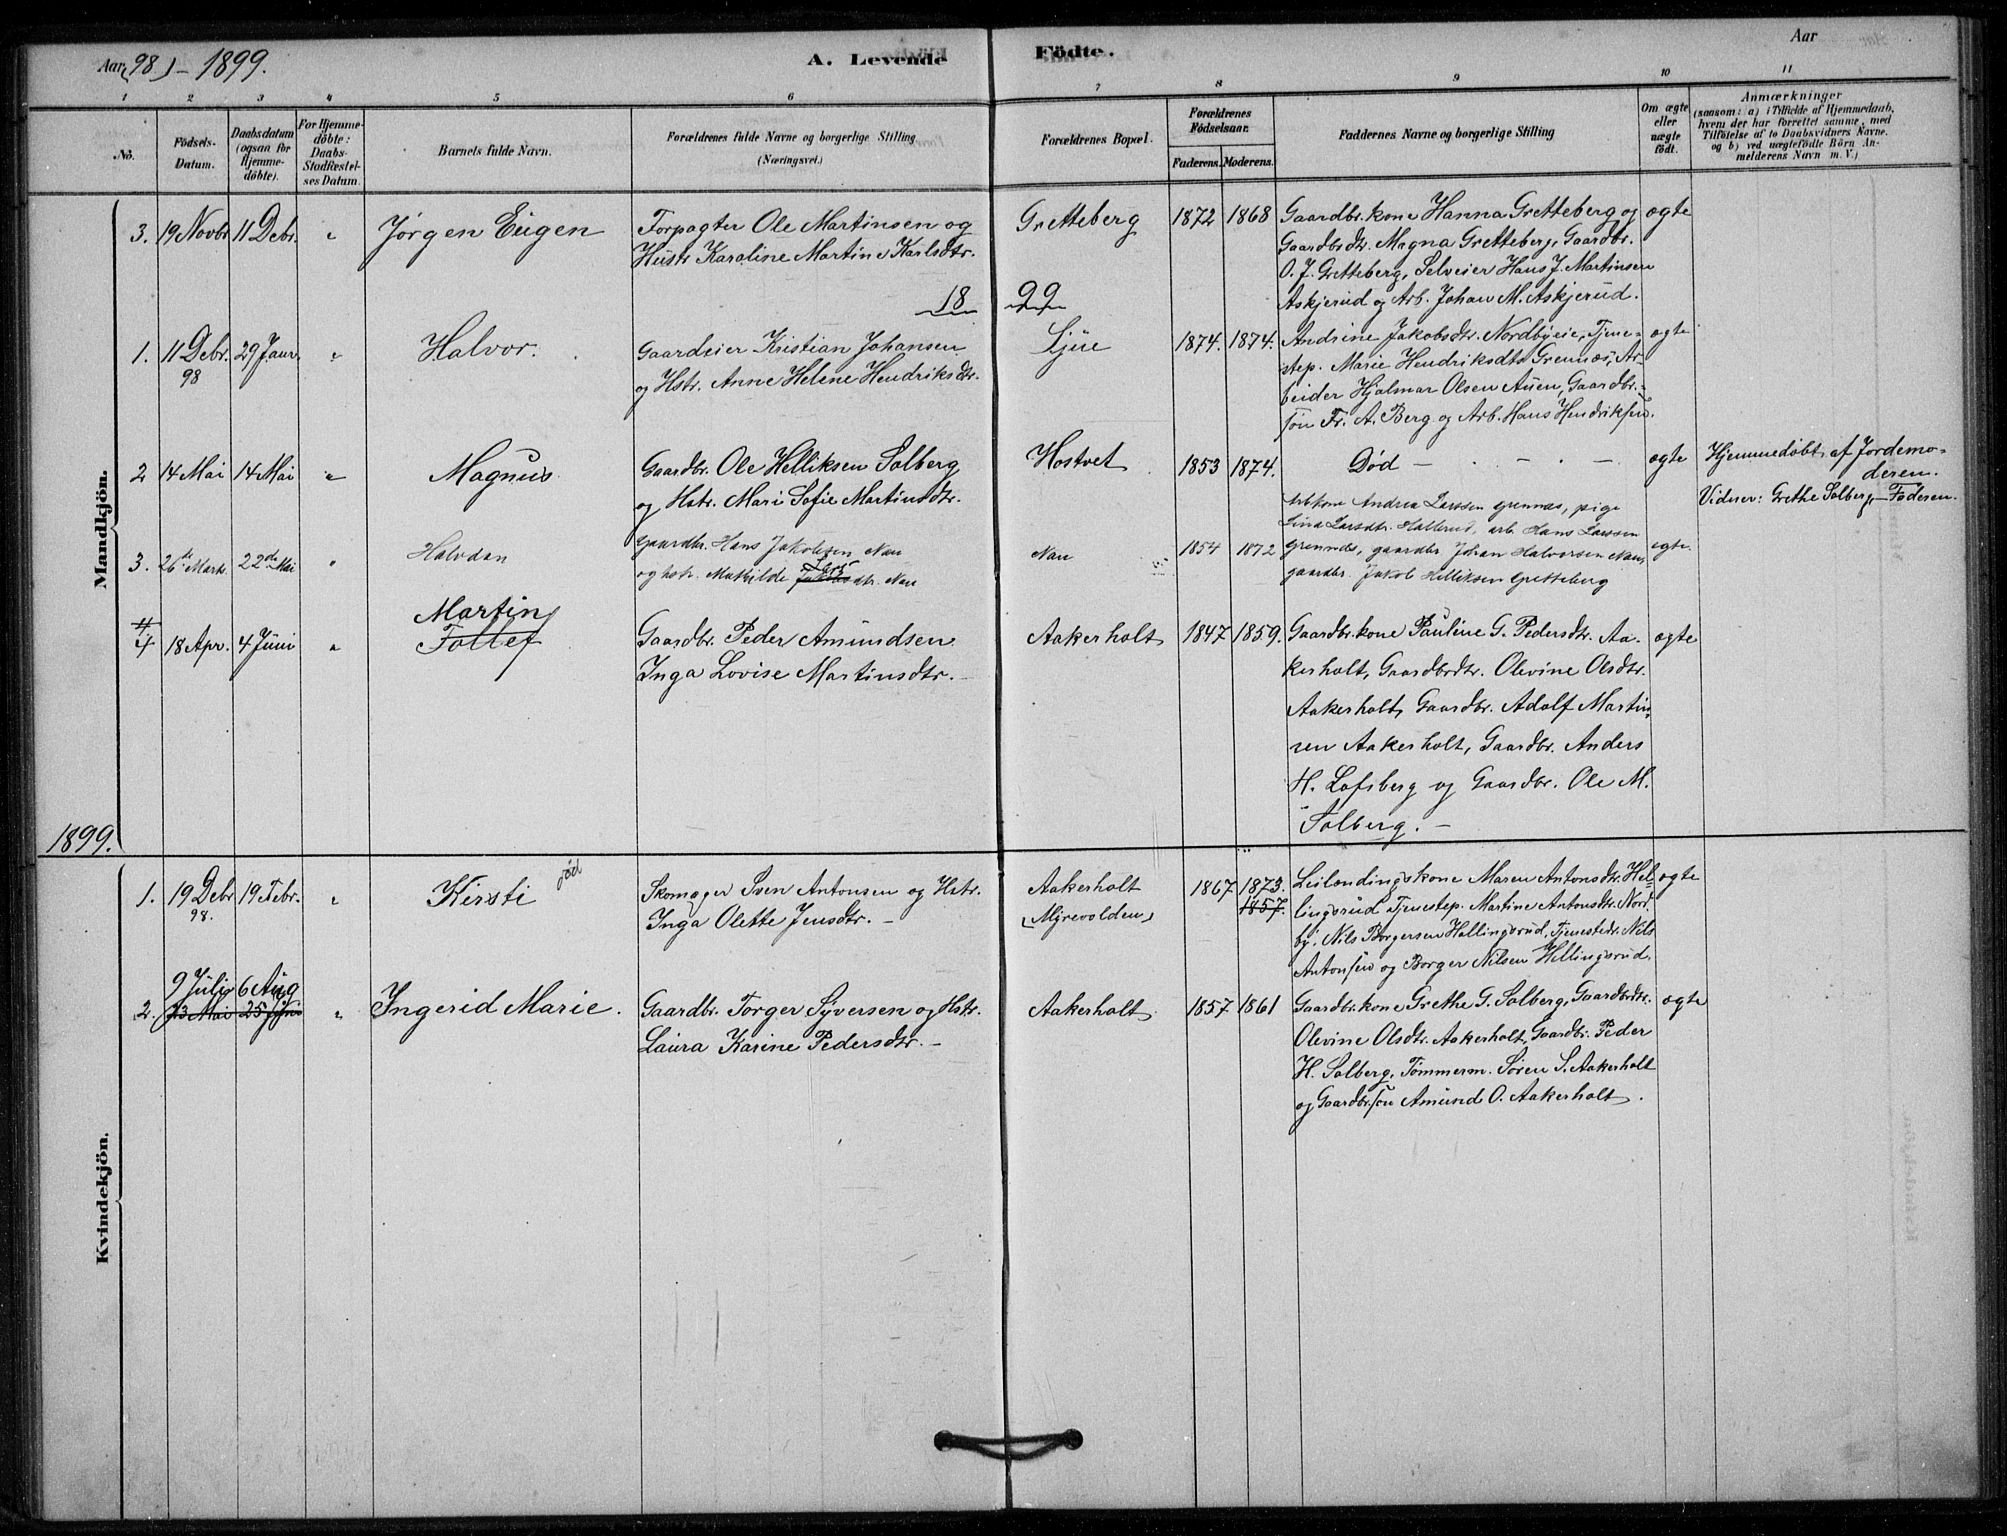 Aar (98) - 1899.
A. Levende
Födte.
Aar
1 2 3 4 5 6 7 8 9 10 11
No.
Födsels-
Datum.
Daabsdatum
(ogsaa for
Hjemme-
døbte).
For Hjemme-
döbte:
Daabs-
Stadfæstel-
ses Datum.
Barnets fulde Navn.
Forældrenes fulde Navne og borgerlige Stilling
(Næringsvei.)
Forældrenes Bopæl.
Forældrenes
Födselsaar.
Faderens. Moderens.
Faddernes Navne og borgerlige Stilling
Om ægte
eller
uægte
födt.
Anmærkninger
(saasom: a) i Tilfælde af Hjemmedaab,
hvem der har forrettet samme, med
Tilföielse af to Daabsvidners Navne.
og b) ved uægtefödte Börn An-
melderens Navn m. V.)
Mandkjön.
3. 19 Novbr. 11 Debr. " Jørgen Eugen
Forpagter Ole Martinsen og
Hustr. Karoline Martine Karlsdtr.
Gretteberg 1872 1868
Gaardbr.kone Hanna Gretteberg og
Gaardbrdtr. Magna Gretteberg, Gaardbr.
O. J. Gretteberg, Selveier Hans J. Martinsen
Askjerud og Arb. Johan M. Askjerud.
ægte
18 99
1. 11 Debr. 98 29 Janr. " Halvor.
Gaardeier Kristian Johansen
og Hstr. Anne Helene Hendriksdtr.
Ljüe 1874. 1874.
Andrine Jakobsdtr. Nordbyeie, Tjene-
step. Marie Hendriksdtr. Grennæs, Ar-
beider Hjalmar Olsen Auen, Gaardbr.-
søn Fr. A. Berg og Arb. Hans Hendriksen.
ægte
2 14 Mai 14 Mai " Magnus
Gaardbr. Ole Helliksen Solberg
og Hstr. Mari Sofie Martinsdtr.
Hostvet 1853 1874.
Død — . — . —
ægte
Hjemmedøbt af Jordemo-
deren.
Vidner: Grethe Solberg, Faderen.
3. 26de Marts. 22de Mai " Halvdan
gaardbr. Hans Jakobsen Nau
og hstr. Mathilde Jakobsdtr. Nau
Lars
Nau 1854 1872
arbkone Andrea Larssen grennæs, pige
Lina Larsdtr. Hallerud, arb. Hans Larssen
grennæs, gaardbr. Johan Halvorsen Nau,
gaardbr. Jakob Helliksen Gretteberg
egte.
4 18 Apr. 4 Juni " Martin
Tollef
Gaardbr. Peder Amundsen
Inga Lovise Martinsdtr. —
Aakerholt 1847 1859.
Gaardbr.kone Pauline G. Pedersdtr. Aa-
kerholt, Gaardbrdtr. Olevine Olsdtr.
Aakerholt, Gaardbr. Adolf Martin-
sen Aakerholt, Gaardbr. Anders
H. Lofsberg og Gaardbr. Ole M.
Solberg. —
ægte
1899.
Kvindekjön.
1. 19 Debr. 98. 19 Febr. " Kirsti død
Skomager Sven Antonsen og Hstr.
Inga Olette Jensdtr. —
Aakerholt
(Myrevolden)
1867 1873.
1857.
Leilændingskone Maren Antonsdtr. Hel-
lingsrud Tjenestep. Martine Antonsdtr. Nord-
by, Nils Borgersen Hellingsrud, Tjenestedr. Nils
Antonsen og Borger Nilsen Hellingsrud.
ægte
9 Julig 6 Aug
2. 13 Mai 25 Juni " Ingerid Marie.
Gaardbr. Torger Syversen og Hstr.
Laura Karine Pedersdtr. —
Aakerholt. 1857 1861
Gaardbr.kone Grethe G. Solberg, Gaardbrdtr.
Olevine Olsdtr. Aakerholt, Gaardbr. Peder
H. Solberg, Tömmerm. Søren S. Aakerholt
og Gaardbr.søn Amund O. Aakerholt.
ægte